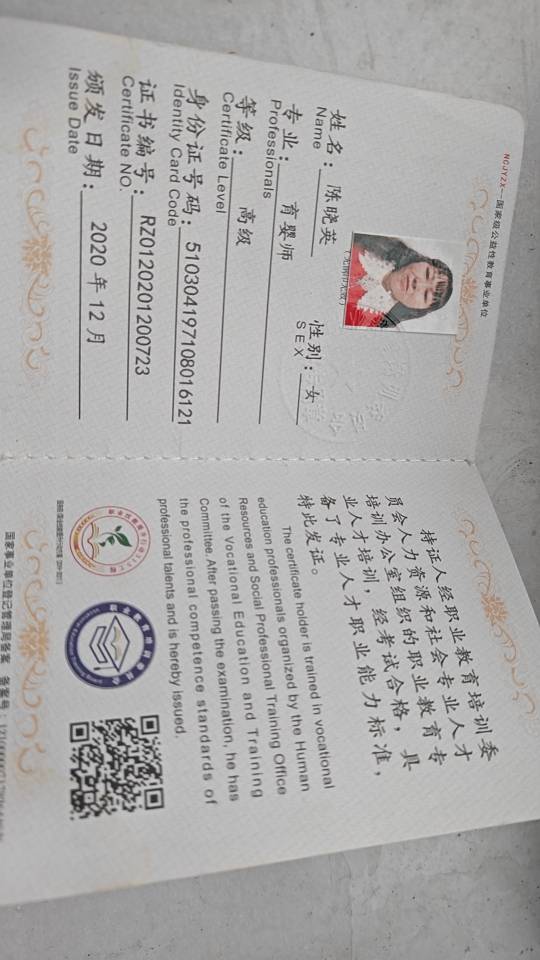 NCJYZX—国家级公益性教育事业单位
姓名：陈晓英
Name
性别：女
SEX
专业：育婴师
Professionals
等级：高级
Certificate Level
身份证号码：510304197108016121
Identity Card Code
证书编号：RZ0120201200723
Certificate NO.
颁发日期：2020年12月
Issue Date
持证人经职业教育培训委
员会人力资源和社会专业人才
培训办公室组织的职业教育专
业人才培训，经考试合格，具
备了专业人才职业能力标准，
特此发证。
The certificate holder is trained in vocational
education professionals organized by the Human
Resources and Social Professional Training Office
of the Vocational Education and Training
Committee. After passing the examination, he has
the professional competence standards of
professional talents and is hereby issued.
国家事业单位登记管理局备案 备案号：